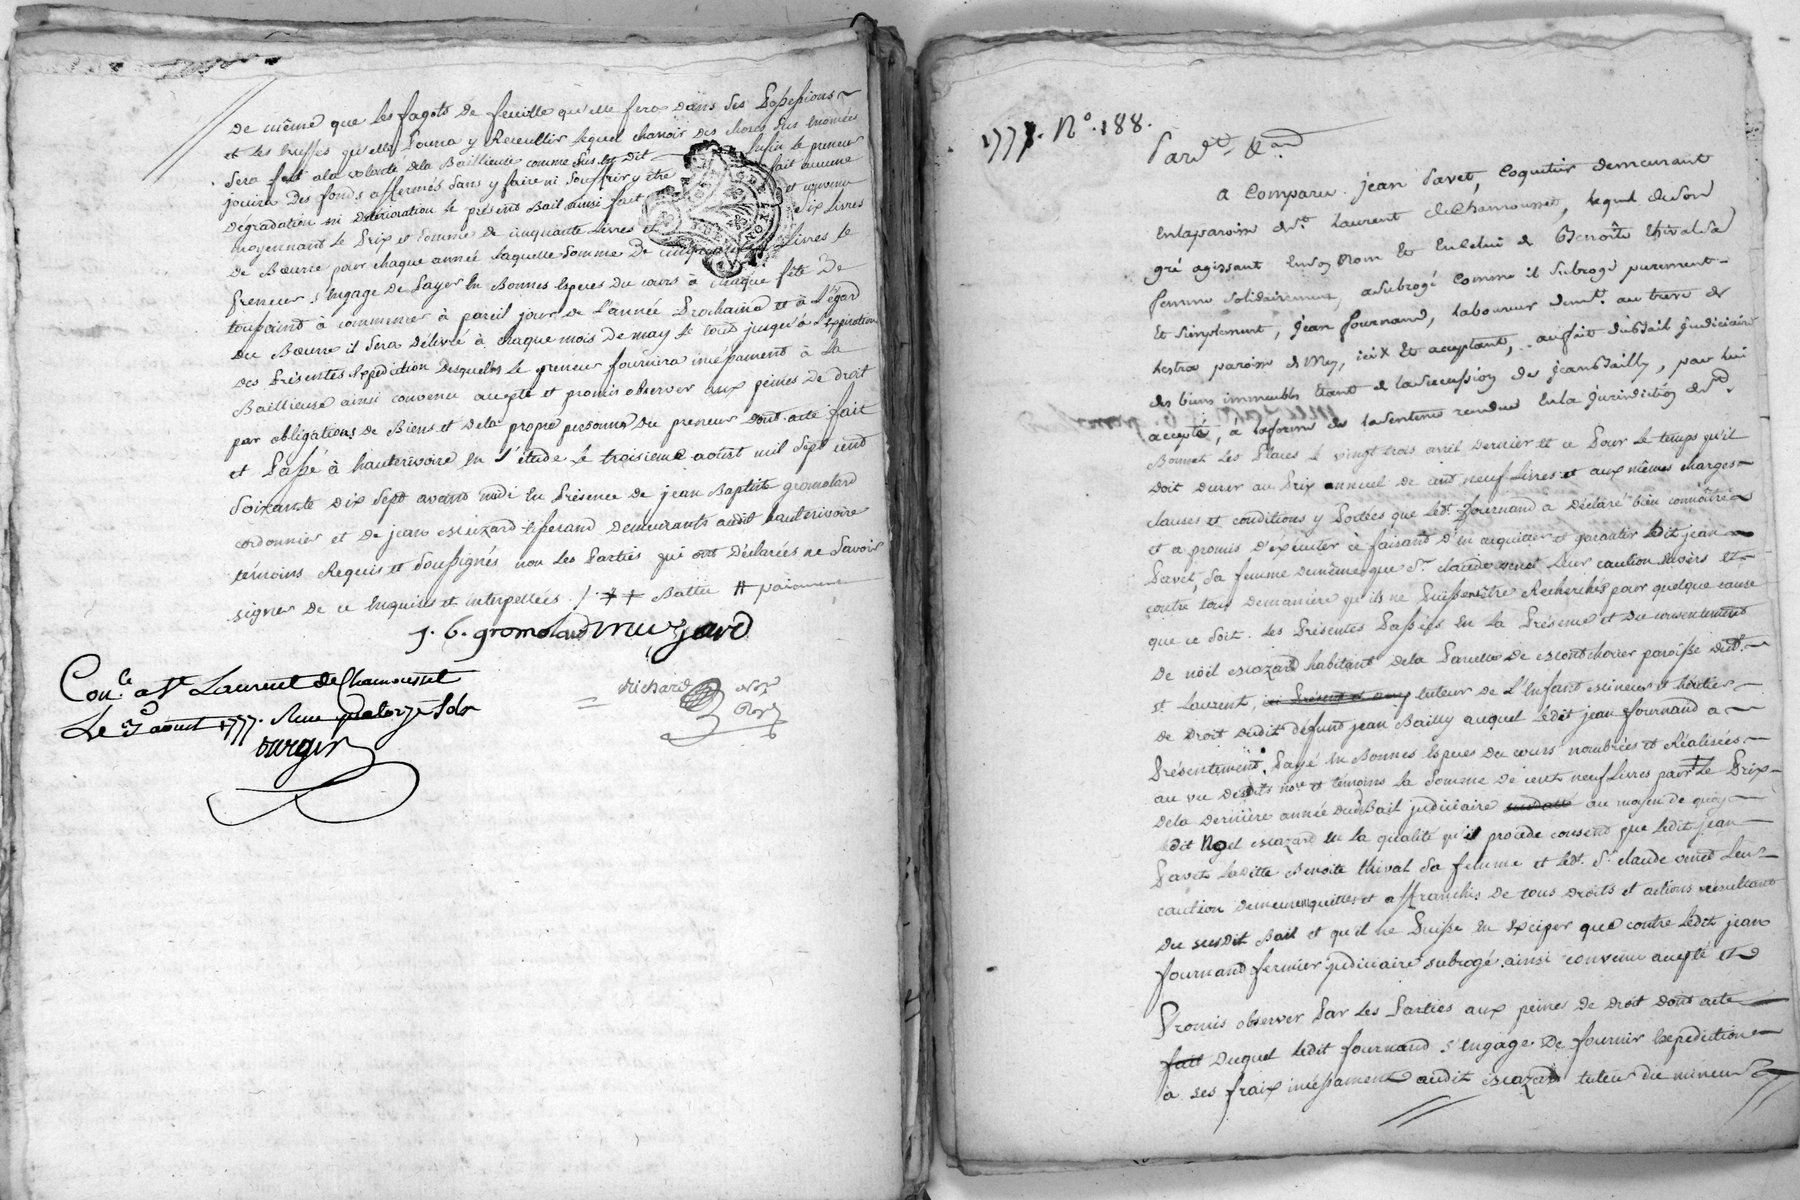 de même que les fagots de feuille qu'elle fera dans ses possessions
et les truffes qu'elle pourra y recueillir lequel charroir des choses sus nomées
sera fait à la volonté de la Baillieuse comme sus est dit enfin le preneur
jouira des fonds affermés sans y faire ni souffrir y être fait aucune
dégradation ni détérioration le présent Bail ainsi fait et convenu
moyennant le prix et somme de cinquante livres et six livres
de Bœurre pour chaque année laquelle somme de cinquante livres le
preneur s'engage de payer en Bonnes espèces du cours à chaque fête de
toussaint à commencer à pareil jour de l'année prochaine et à l'égard
du Bœurre il sera délivré à chaque mois de may le tout jusqu'à l'expiration
des présentes expédition desquelles le preneur fournira incessament à la
Baillieuse ainsi convenu accepté et promis observer aux peines de droit
par obligations de Biens et de la propre personne du preneur dont acte fait
et passé à hauterivoire en l'étude le troisieme aoust mil sept cent
soixante dix sept avant midi en présence de jean Baptiste gromolard
cordonnier et de jean muzard tisserand demeurants audit hauterivoire
témoins requis et soussignés non les parties qui ont déclarées ne savoir
signer de ce enquises et interpellées ./. Battu # paiement
J. B. gromolard muzard
Con.le a St Laurent de Chamousset
Le 3 aout 1777. Reçu
richard No.re Roy.
1777. N.o 188.
Pard.t &.a
a comparu jean pavet, coquetier demeurant
en la paroisse de St. laurent de Chamousset, lequel de son
gré agissant en son nom et en celui de Benoite thival sa
femme solidairement, a subrogé comme il subroge purement
et simplement, jean fournand, laboureur dem.t au lieu de
paroisse de Mey, ici x et acceptant, au fait du Bail judiciaire
des biens immeubles étant de la succession de jean Bailly, par lui
accepté, à la forme de la sentence rendue en la juridiction de St.
Bonnet les places le vingt trois avril dernier et ce pour le temps qu'il
doit durer au prix annuel de cent neuf livres et aux mêmes charges
clauses et conditions y portées que led.t fournand a déclaré bien connoître
et a promis d'exécuter ce faisant d'en acquitter et garantir ledit jean
pavet, sa femme de même que S.r claude venet leur caution envers et
contre tous de maniere qu'ils ne puissent être recherchés pour quelque cause
que ce soit. les présentes passées en la présence et du consentement
de noël escazard habitant de la parcelle de montchovier paroisse dud.t
st. laurent, ici présent et tuteur de l'enfant mineur et héritier
de droit dudit défunt jean Bailly auquel ledit jean fournand a
présentement payé en Bonnes espèces du cours nombrées et réalisées
au vu desdits no.re et témoins la somme de cent neuf livres pour le prix
de la dernière année dud. Bail judiciaire au moyen de quoy
ledit Noël escazard en la qualité qu'il procede consent que ledit jean
pavet ladite Benoite thival sa femme et led. S.r claude venet leur
caution demeurent quittes et affranchis de tous droits et actions résultant
du susdit Bail et qu'il ne puisse en exciper que contre ledit jean
fournand fermier judiciaire subrogé. ainsi convenu accepté et
promis observer par les parties aux peines de droit dont acte
fait duquel ledit fournand s'engage de fournir expédition
à ses fraix incessament audit escazard tuteur du mineur